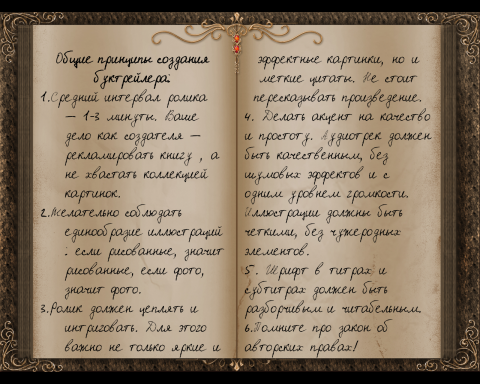 Общие принципы создания
буктрейлера:
1.Средний интервал ролика
– 1-3 минуты. Ваше
дело как создателя –
рекламировать книгу , а
не хвастать коллекцией
картинок.
2.Желательно соблюдать
единообразие иллюстраций
: если рисованные, значит
рисованные, если фото,
значит фото.
3.Ролик должен цеплять и
интриговать. Для этого
важно не только яркие и
эффектные картинки, но и
меткие цитаты. Не стоит
пересказывать произведение.
4. Делать акцент на качество
и простоту. Аудиотрек должен
быть качественным, без
шумовых эффектов и с
одним уровнем громкости.
Иллюстрации должны быть
четкими, без чужеродных
элементов.
5. Шрифт в титрах и
субтитрах должен быть
разборчивым и читабельным.
6.Помните про закон об
авторских правах!